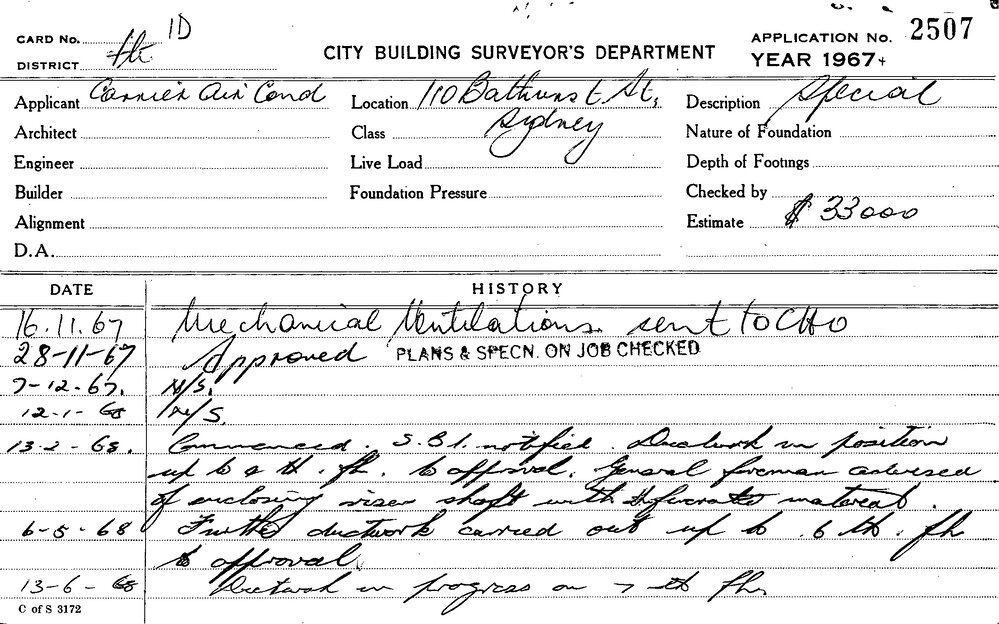 CARD No. 1D
DISTRICT
CITY BUILDING SURVEYOR'S DEPARTMENT
APPLICATION No. 2507
YEAR 1967+
Applicant Carrier Air Cond
Location 110 Bathurst St,
Sydney
Description Special
Architect
Class
Nature of Foundation
Engineer
Live Load
Depth of Footings
Builder
Foundation Pressure
Checked by
Alignment
Estimate $ 33000
D.A.
DATE HISTORY
16.11.67 Mechanical Ventilations sent to CHO
28-11-67 Approved PLANS & SPECN. ON JOB CHECKED
7-12-67. N/S.
12-1-68 N/S.
13-2-68. Commenced. S.B.I. notified. Ductwork in position
up to th. flr. to approval. General foreman advised
of enclosing riser shaft with material.
6-5-68 Further ductwork carried out up to 6 th. flr
to approval.
13-6-68 Ductwork in progress on 7-th flr.
C of S 3172